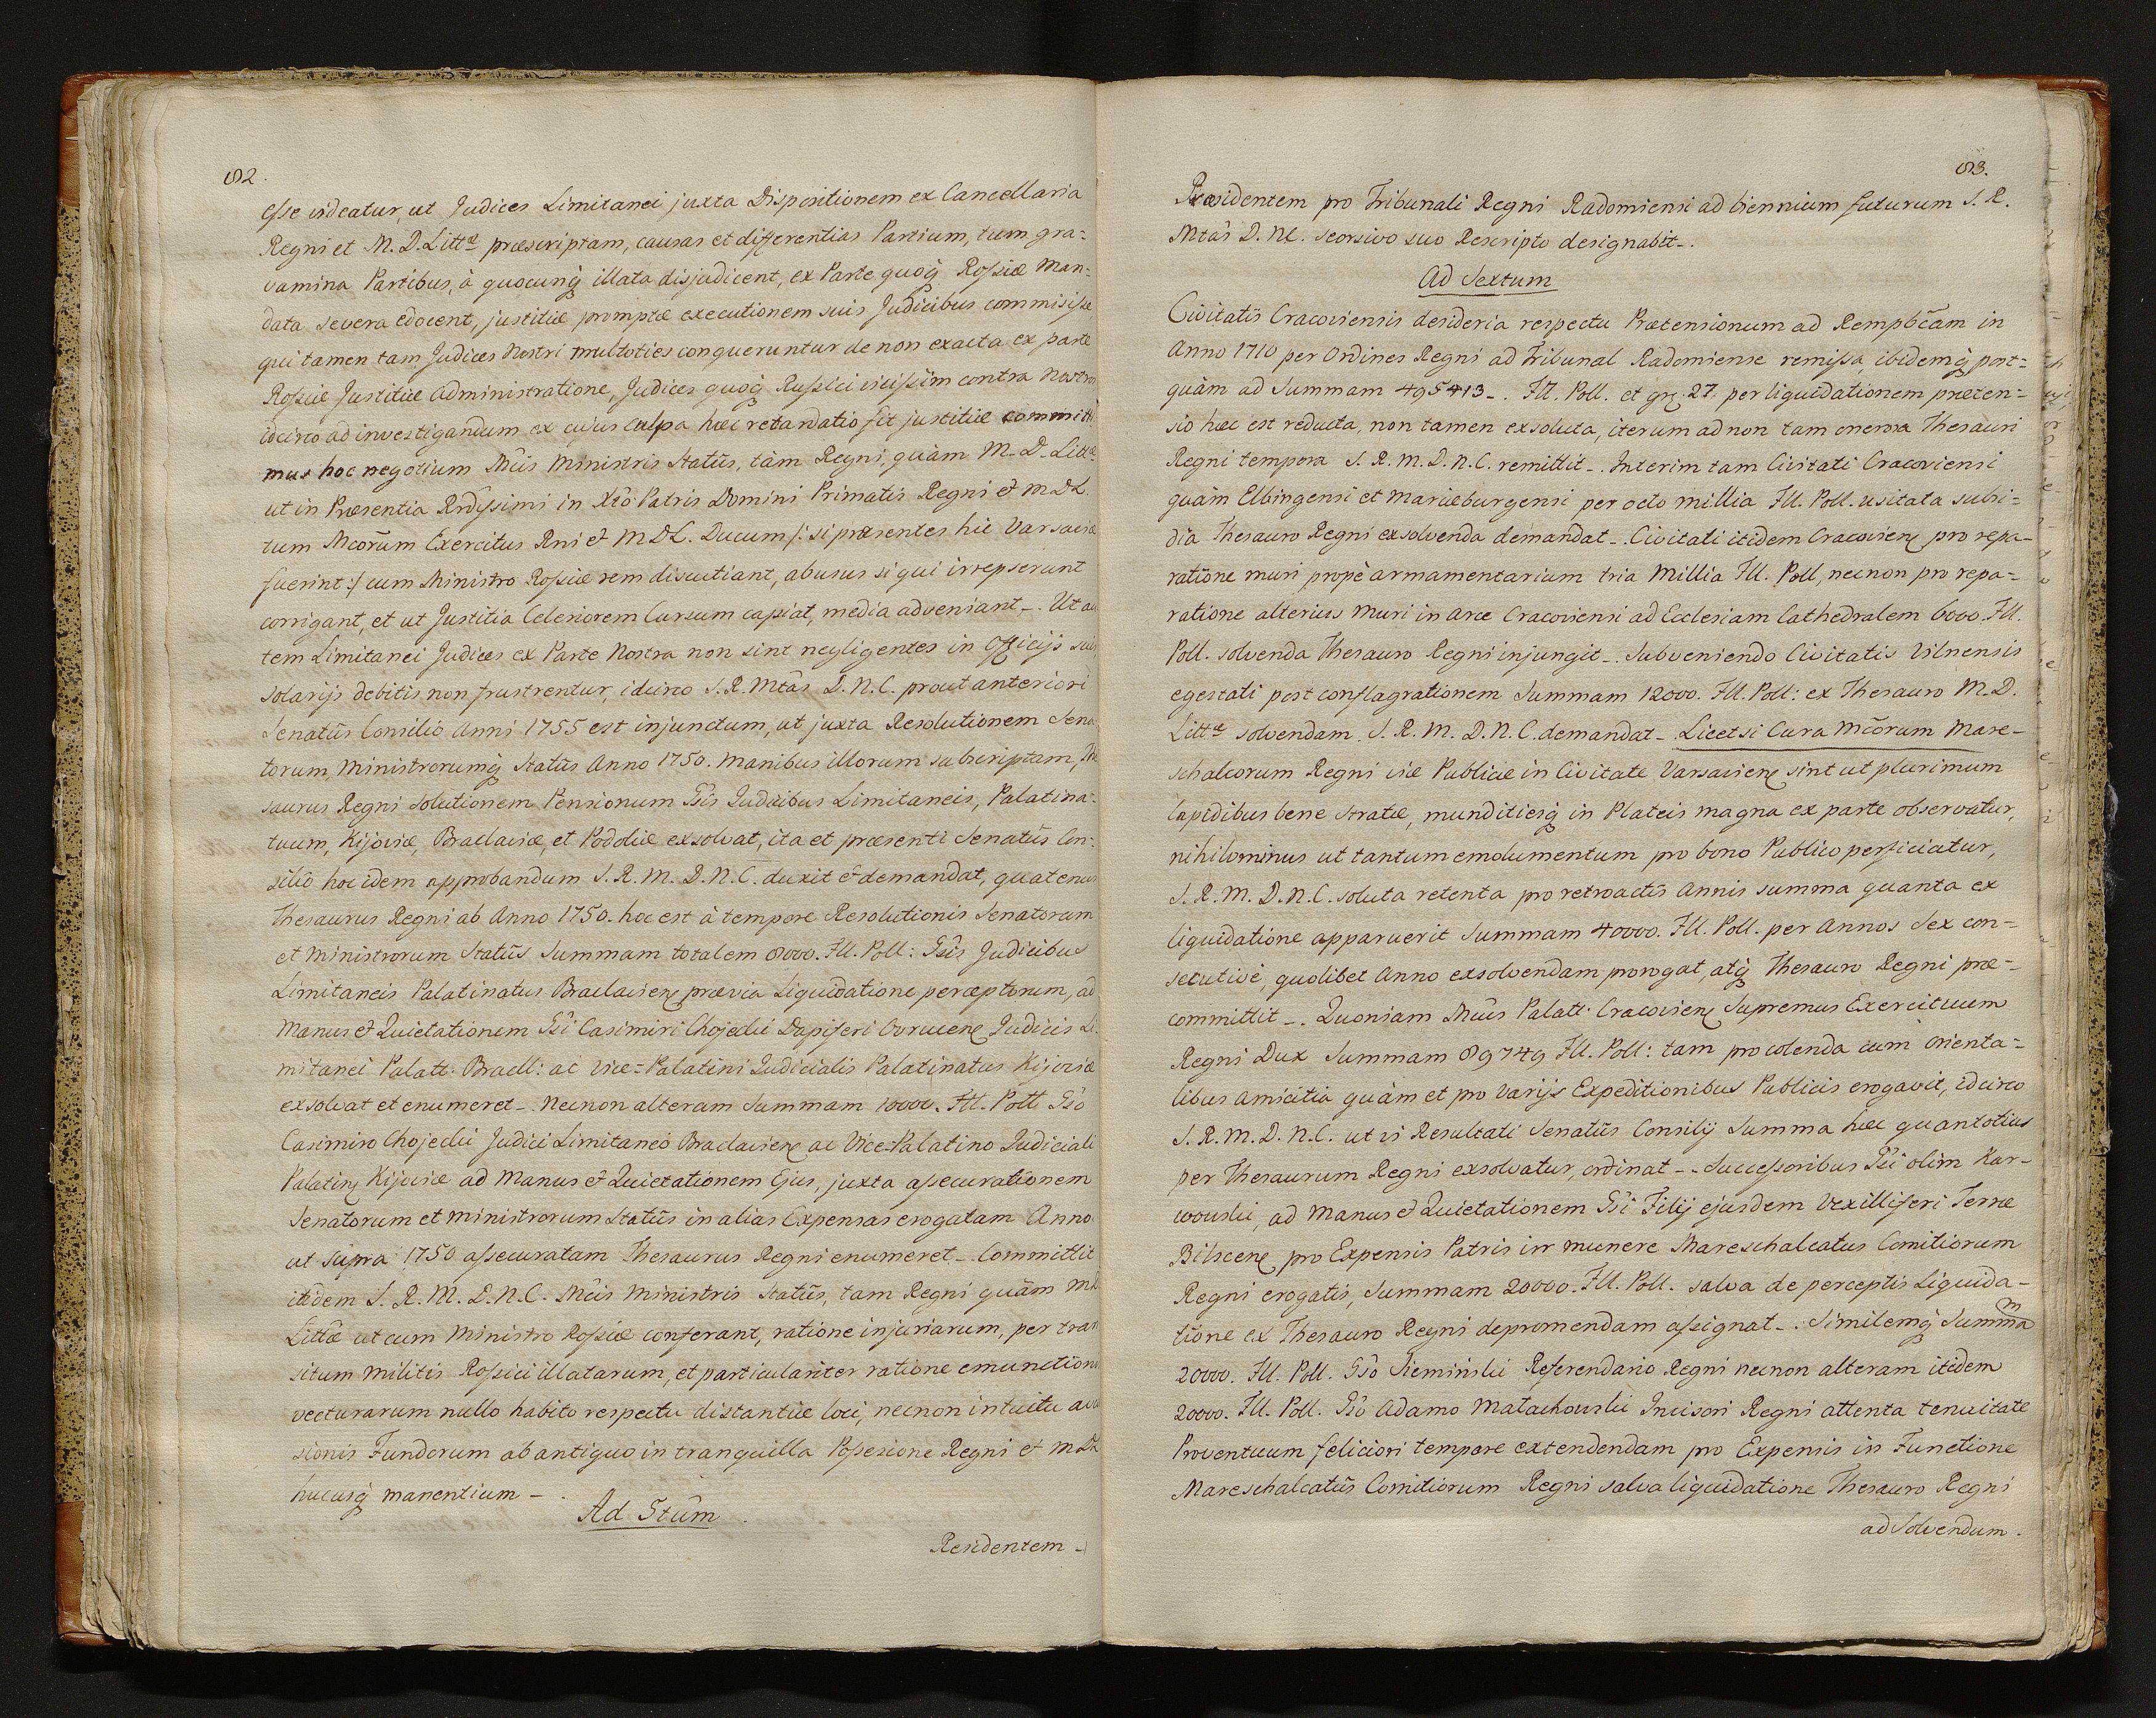 182.
esse videatur, ut Judices Limitanei juxta Dispositionem ex Cancellaria
Regni et M. D. Littæ præscriptam, causas et differentias Partium, tum gra=
vamina Partibus, à quocunq̃ illata disjudicent, ex Parte quoq̃ Rossiæ Man=
data severa edocent, justitiæ promptæ executionem suis Judicibus commisisse
qui tamen tam Judices Nostri multoties conqueruntur de non exacta ex parte
Rossiæ Justitiæ Administratione, Judices quoq̃ Russici vicissim contra Nostros
idcirco ad investigandum ex cujus culpa hæc retardatio fit justitiæ committi
mus hoc negotium Mcis Ministris Statûs, tàm Regni, quàm M. D. Littæ
ut in Præsentia Rdyssimi in Xto Patris Domini Primatis Regni et M D L.
tum Mcorum Exercitus Rni et M D L. Ducum /: si præsentes hic Varsaviæ
fuerint :/ cum Ministro Rossiæ rem discutiant, abusus si qui irrepserunt
corrigant, et ut Justitia Celeriorem Cursum capiat, media adveniant_. Ut au
tem Limitanei Judices ex Parte Nostra non sint negligentes in Officijs suis,
solarijs debitis non frustrentur, idcirco S. R. Mtâs D. N. C. prout anteriori
Senatûs Consiliô Anni 1755 est injunctum, ut juxta Resolutionem Sena
torum, Ministrorumq̃ Statûs Anno 1750. manibus illorum subscriptam, The
saurus Regni solutionem Pensionum Gsis Judicibus Limitaneis, Palatina=
tuum, Kijoviæ, Braclaviæ, et Podoliæ exsolvat, ita et præsenti Senatûs Con=
siliô hoc idem approbandum S. R. M. D. N. C. duxit et demandat, quatenus
Thesaurus Regni ab Anno 1750. hoc est à tempore Resolutionis Senatorum
et Ministrorum Statûs Summam totalem 8000. Fll. Poll: Gsis Judicibus
Limitaneis Palatinatus Braclavien prævia Liquidatione perceptorum, ad
Manus et Quietationem Gsi Casimiri Chojecki Dapiferi Ovrucen Judicis Li
mitanei Palatt. Bracll: ac Vice=Palatini Judicialis Palatinatus Kijoviæ
exsolvat et enumeret_. Necnon alteram Summam 10000. Fll. Poll Gso
Casimiro Chojecki Judici Limitaneo Braclavien ac Vice-Palatino Judiciali
Palatin Kijoviæ ad Manus et Quietationem Ejus, juxta assecurationem
Senatorum et Ministrorum Statûs in alias Expensas erogatam Anno
ut supra 1750 assecuratam Thesaurus Regni enumeret_. Committit
itidem S. R. M. D. N. C. Mcis Ministris Statûs, tam Regni quàm MD
Littæ ut cum Ministro Rossiæ conferant, ratione injuriarum, per tran
situm militis Rossici illatarum, et particulariter ratione emunctionis
vecturarum nullo habito respectu distantiæ loci, necnon intuitu avul
sionis Fundorum ab antiquo in tranquilla Possesione Regni et M D L
hucusq̃ manentium_.
Ad 5tum
Residentem_
183.
Præsidentem pro Tribunali Regni Radomiensi ad biennium futurum S. R.
Mtâs D. NC. seorsivo suo Rescripto designabit_.
Ad Sextum
Civitatis Cracoviensis desideria respectu Prætensionum ad Rempbcam in
Anno 1710 per Ordines Regni ad Tribunal Radomiense remissa, ibidemq̃ post=
quàm ad Summam 495413_. Fll. Poll. et gr. 27. per liquidationem præten=
sio hæc est reducta, non tamen exsoluta, iterum ad non tam onerosa Thesauri
Regni tempora S. R. M. D. N. C. remittit_. Interim tam Civitati Cracoviensi
quàm Elbingensi et Mariæburgensi per octo millia Fll. Poll. usitata subsi=
dia Thesauro Regni exsolvenda demandat_. Civitati itidem Cracovien pro repa=
ratione muri propè armamentarium tria Millia Fll. Poll, necnon pro repa=
ratione alterius Muri in Arce Cracoviensi ad Ecclesiam Cathedralem 6000. Fll.
Poll. solvenda Thesauro Regni injungit_. Subveniendo Civitatis Vilnensis
egestati post conflagrationem Summam 12000. Fll. Poll: ex Thesauro M. D.
Littæ solvendam S. R. M. D. N. C. demandat_ Licet si Cura Mcorum Mare=
schalcorum Regni viæ Publicæ in Civitate Varsavien sint ut plurimum
lapidibus bene stratæ, munditiesq̃ in Plateis magna ex parte observatur,
nihilominus ut tantum emolumentum pro bono Publico perficiatur,
S. R. M. D. N. C. soluta retenta pro retroactis Annis summa quanta ex
liquidatione apparuerit Summam 40000. Fll. Poll. per Annos Sex con=
secutivè, quolibet Anno exsolvendam prorogat, atq̃ Thesauro Regni præ=
committit_. Quoniam Mcus Palatt. Cracovien Supremus Exercituum
Regni Dux Summam 89749 Fll. Poll: tam pro colenda cum Orienta=
libus Amicitia quàm et pro Varijs Expeditionibus Publicis erogavit, idcirco
S. R. M. D. N. C. ut vi Resultati Senatûs Consilij Summa hæc quantotius
per Thesaurum Regni exsolvatur, ordinat_. Successoribus Gsi olim Kar=
wowski, ad Manus et Quietationem Gsi Filij ejusdem Vexilliferi Terræ
Bilscen pro Expensis Patris in munere Mareschalcatus Comitiorum
Regni erogatis, Summam 20000. Fll. Poll. salva de perceptis Liquida=
tione ex Thesauro Regni depromendam assignat_. Similemq̃ Summam
20000. Fll. Poll. Gso Siemiński Referendario Regni necnon alteram itidem
20000. Fll. Poll. Gso Adamo Małachowski Incisori Regni attenta tenuitate
Proventuum feliciori tempore extendendam pro Expensis in Functione
Mareschalcatûs Comitiorum Regni salva liquidatione Thesauro Regni
ad Solvendum.